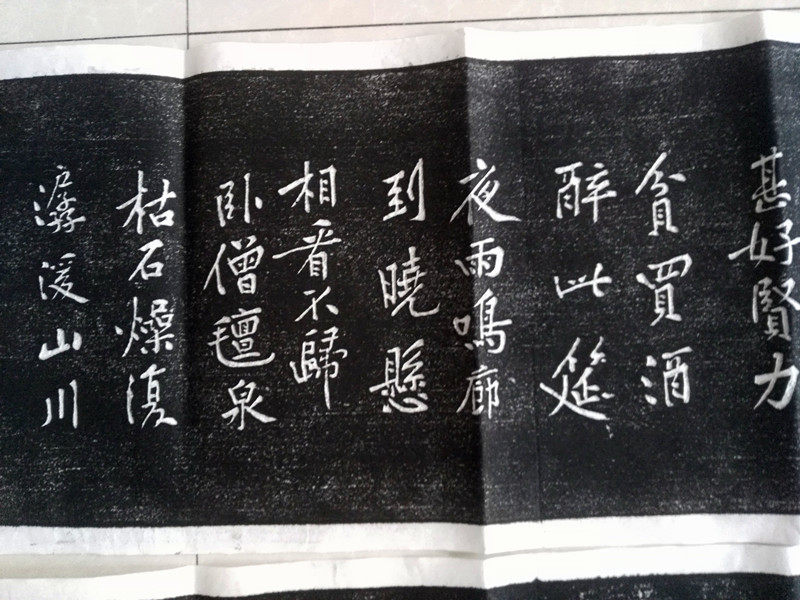 甚好賢力
貧買酒
醉此筵
夜雨鳴廊
到曉懸
相看不歸
卧僧氈泉
枯石燥復
潺湲山川